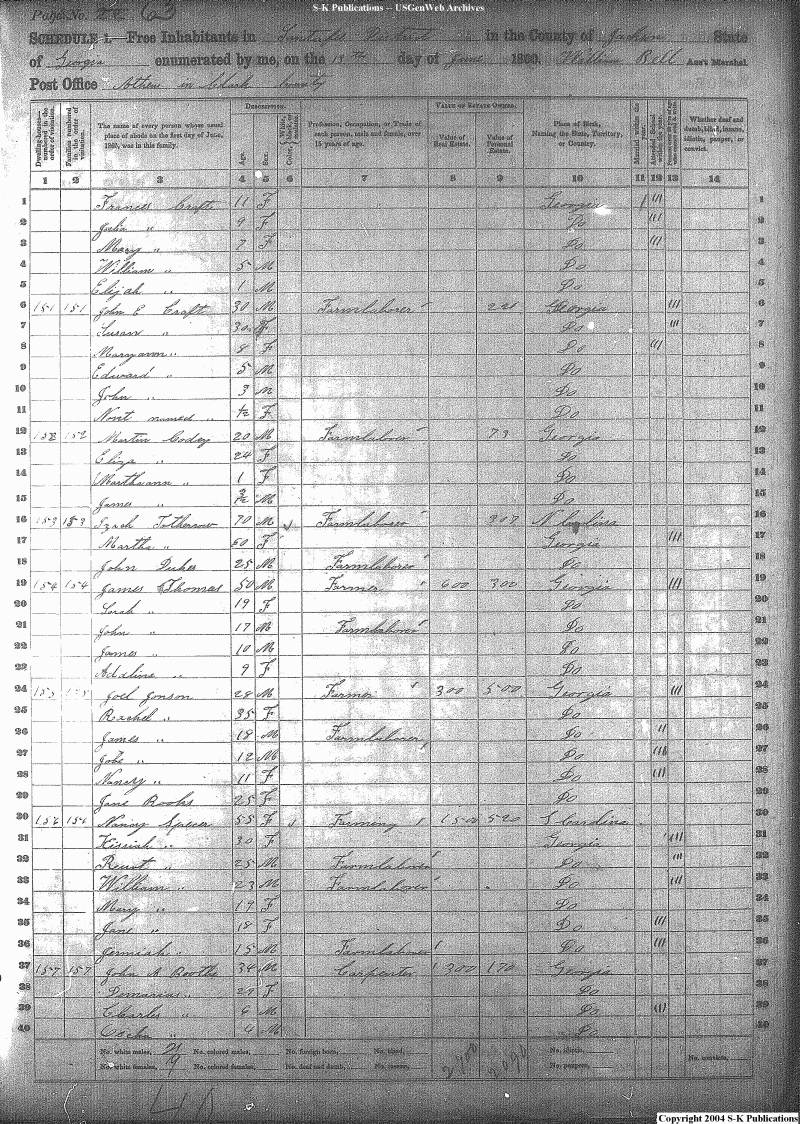 S-K Publications -- USGenWeb Archives
Page No. 63
SCHEDULE 1.—Free Inhabitants in District in the County of Jackson State
of Georgia enumerated by me, on the 18th day of June 1860. William Bell Ass't Marshal.
Post Office Athens in Clark county
Dwelling-houses—numbered in the order of visitation.
Families numbered in the order of visitation.
The name of every person whose usual place of abode on the first day of June, 1860, was in this family.
DESCRIPTION.
Age.
Sex.
Color, White, black, or mulatto.
Profession, Occupation, or Trade of each person, male and female, over 15 years of age.
VALUE OF ESTATE OWNED.
Value of Real Estate.
Value of Personal Estate.
Place of Birth, Naming the State, Territory, or Country.
Married within the year.
Attended School within the year.
Whether deaf and dumb, blind, insane, idiotic, pauper, or convict.
1 2 3 4 5 6 7 8 9 10 11 12 13 14
1 Frances Craft 11 F Georgia / /// 1
2 Julia " 9 F Do /// 2
3 Mary " 7 F Do /// 3
4 William " 5 M Do 4
5 Elijah " 1 M Do 5
6 151 151 John E Craft 30 M Farmlaborer 221 Georgia /// 6
7 Susan " 30 F Do /// 7
8 Maryann " 8 F Do /// 8
9 Edward " 5 M Do 9
10 John " 3 M Do 10
11 Nont named " F Do 11
12 152 152 Martin Codey 20 M Farmlaborer 73 Georgia 12
13 Eliza " 24 F Do 13
14 Marthann " 1 F Do 14
15 James " M Do 15
16 153 153 70 M Farmlaborer 307 N Carolina 16
17 Martha " 60 F Georgia /// 17
18 John Dukes 25 M Farmlaborer Do 18
19 154 154 James Thomas 50 M Farmer 600 300 Georgia /// 19
20 Sarah " 19 F Do 20
21 John " 17 M Farmlaborer Do 21
22 James " 10 M Do 22
23 Adaline " 9 F Do 23
24 155 155 Joel Jonson 28 M Farmer 300 500 Georgia /// 24
25 Rachel " 35 F Do 25
26 James " 18 M Farmlaborer Do // 26
27 " 12 M Do /// 27
28 Nancy " 11 F Do /// 28
29 Jane Rooks 25 F Do 29
30 156 156 Nancy Specer 55 F Farming 1500 520 S Carolina 30
31 Kissiah " 30 F Georgia /// 31
32 " 25 M Farmlaborer Do /// 32
33 William " 23 M Farmlaborer Do /// 33
34 Mary " 19 F Do 34
35 Jane " 18 F Do /// 35
36 Jermiah " 15 M Farmlaborer Do /// 36
37 157 157 John A Boothe 34 M Carpenter 300 170 Georgia 37
38 Demarius " 29 F Do 38
39 Charles " 6 M Do /// 39
40 " 4 M Do 40
No. white males, 21 No. colored males, No. foreign born, No. blind, No. idiotic, No. convicts,
No. white females, 19 No. colored females, No. deaf and dumb, No. insane, No. paupers,
40
Copyright 2004 S-K Publications